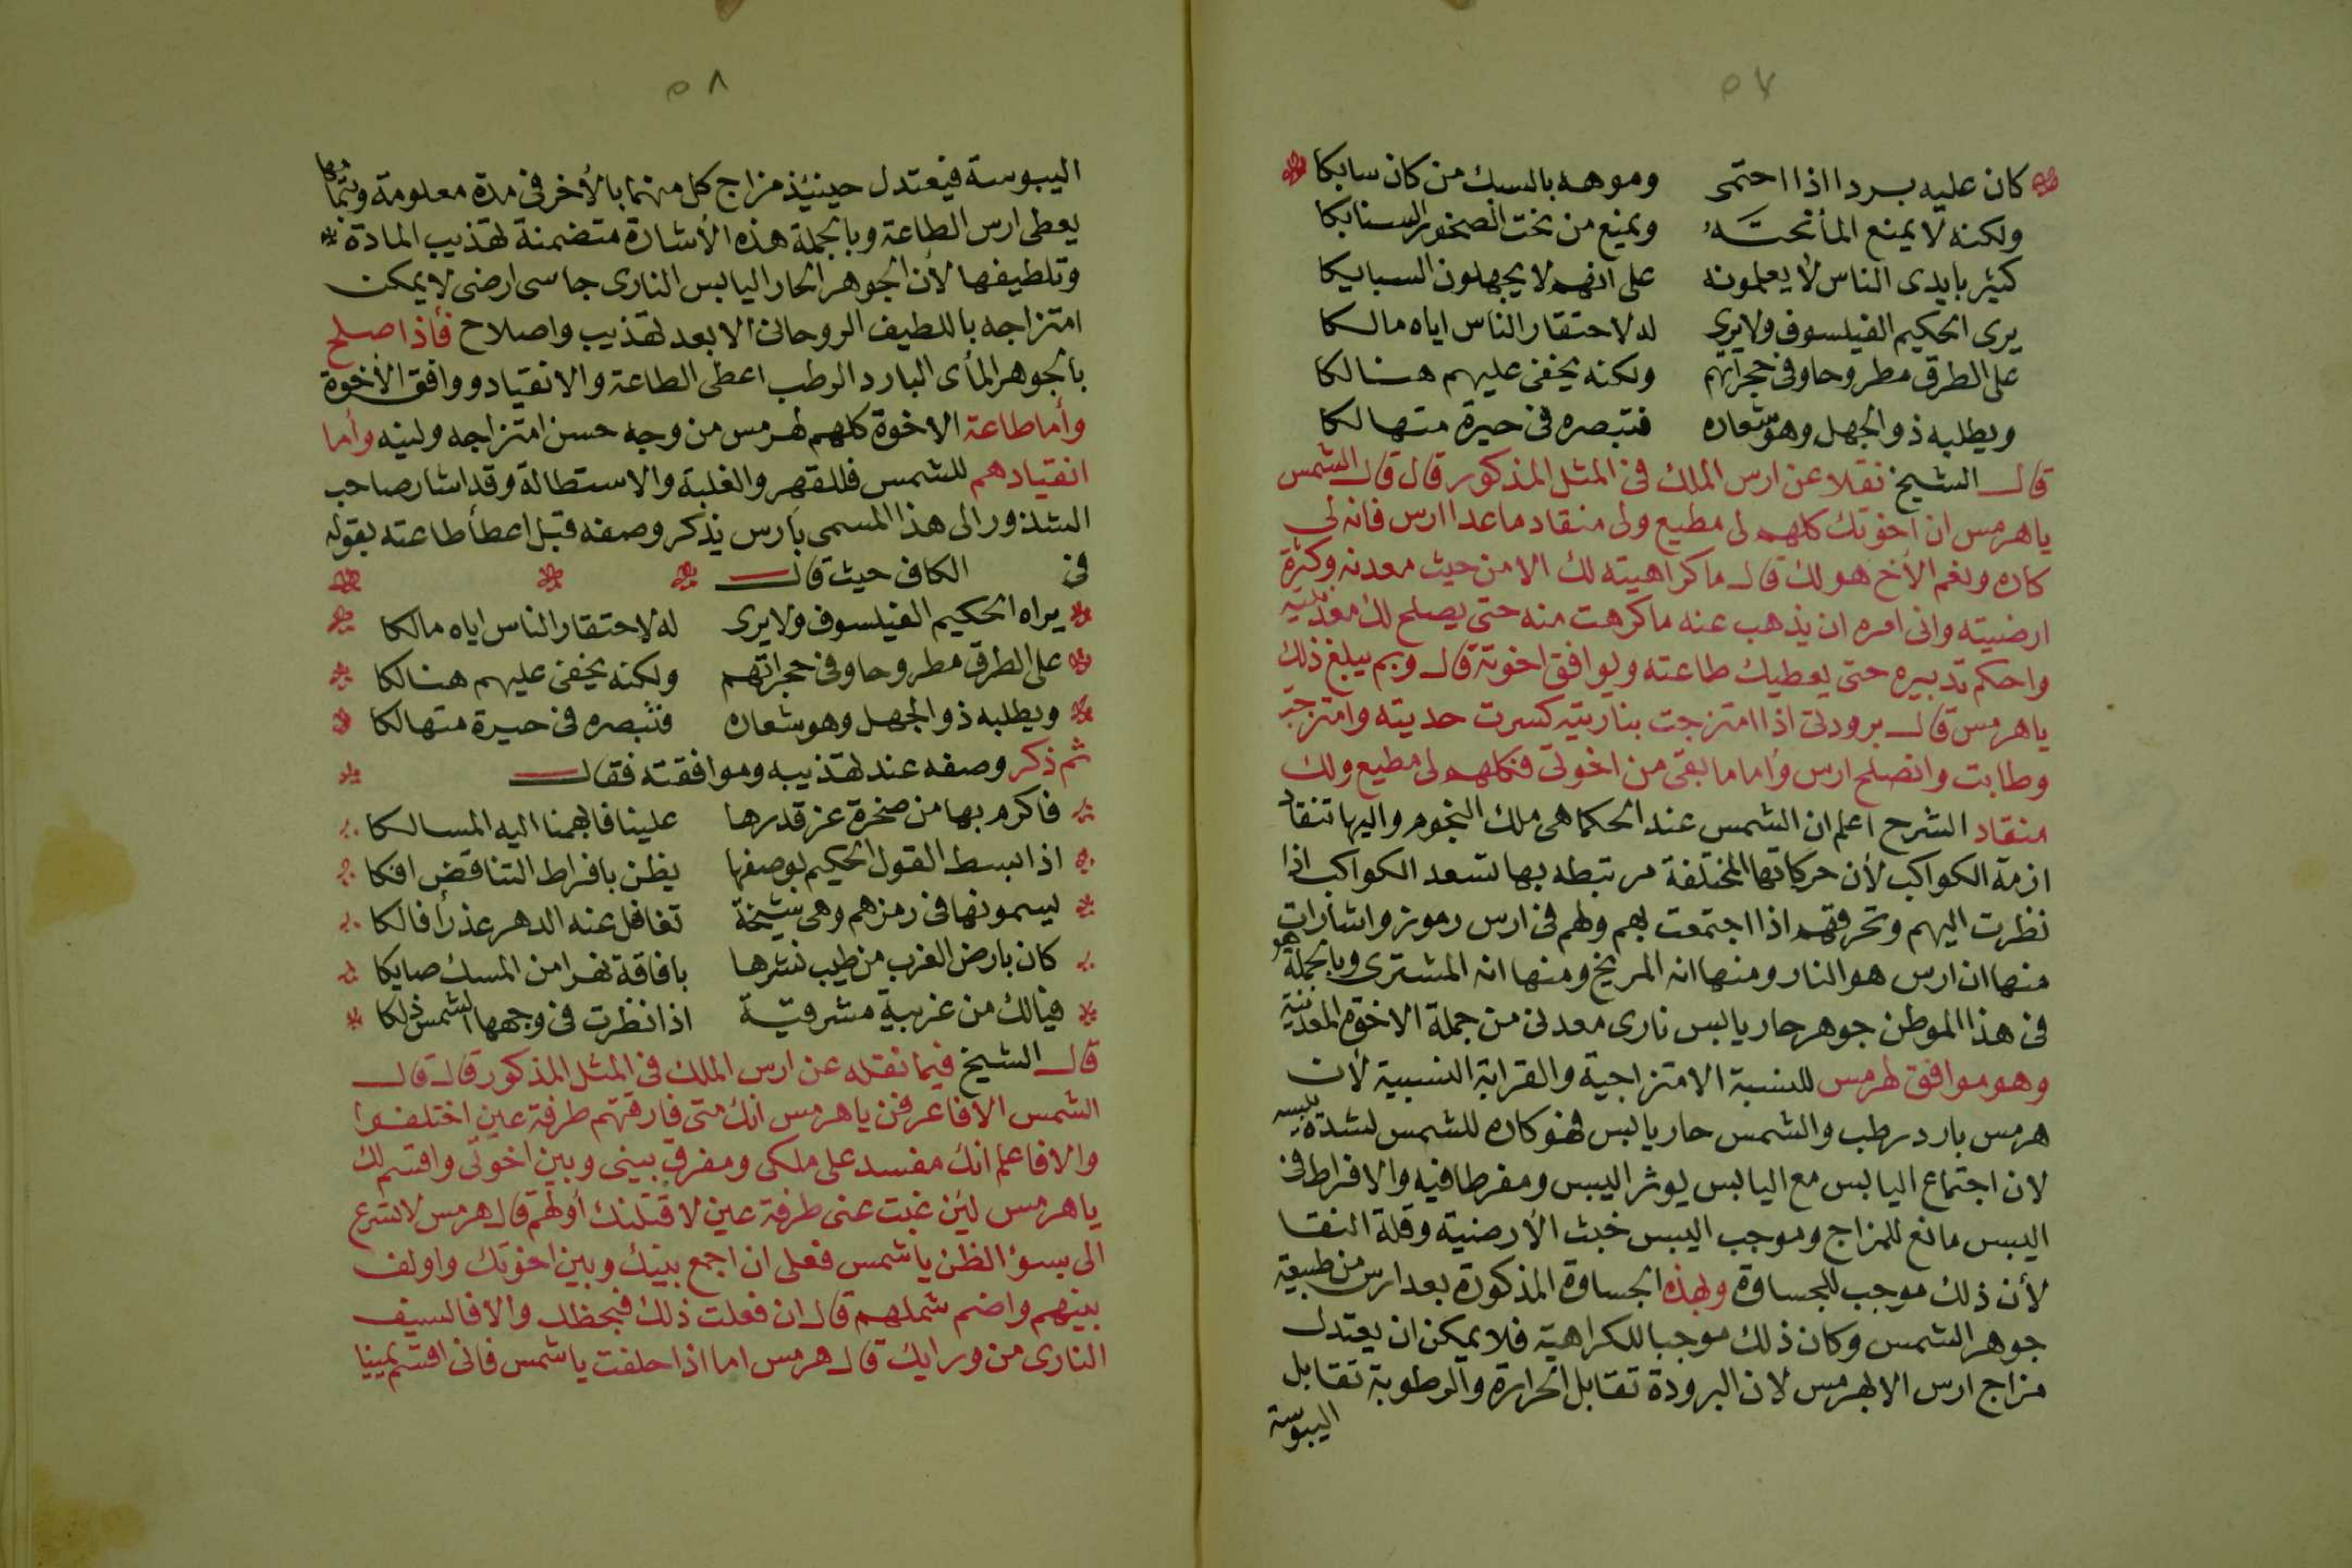 ٥٧
كان عليه بردا اذا احتمى وموهه بالسبك من كان سابكا
ولكنه لا يمنع المأ تحته ويمنع من تحت الصخور السنابكا
كثير بايدى الناس لا يعلمونه على انهم لا يجهلون السبايكا
يرى الحكيم الفيلسوف ولا يرى له لاحتقار الناس اياه مالكا
على الطرق مطروحا وفى حجراتهم ولكنه يخفى عليهم هنالكا
ويطلبه ذو الجهل وهو شعاره فتبصره فى حيرة متهالكا
قال الشيخ نقلا عن ارس الملك فى المثل المذكور قال قال الشمس
ياهرمس ان اخوتك كلهم لى مطيع ولى منقاد ما عدا ارس فانه لى
كاره ونعم الأخ هو لك قال ما كراهيته لك الا من حيث معدنه وكثرة
ارضيته وانى امره ان يذهب عنه ما كرهت منه حتى يصلح لك
واحكم تدبيره حتى يعطيك طاعته ويوافق اخوته قال وبم يبلغ ذلك
ياهرمس قال برودتى اذا امتزجت بناريته كسرت حديته وامتزجت
وطابت وانصلح ارس وأما ما بقى من اخوتى فكلهم لى مطيع ولك
منقاد الشرح اعلم ان الشمس عند الحكما هى ملك النجوم واليها تنقاد
ازمة الكواكب لأن حركاتها المختلفة مرتبطه بها تسعد الكواكب اذا
نظرت اليهم وتحرقهم اذا اجتمعت بهم ولهم فى ارس رموز واشارات
منها ان ارس هو النار ومنها انه المريخ ومنها انه المشترى وبالجملة هو
فى هذا الموطن جوهر حار يابس نارى معدنى من جملة الاخوة المعدنية
وهو موافق لهرمس للنسبة الامتزاجية والقرابة النسبية لأن
هرمس بارد رطب والشمس حار يابس فهو كاره للشمس لشدة يبسه
لان اجتماع اليابس مع اليابس يوثر اليبس ومفرطا فيه والافراط فى
اليبس مانع للمزاج وموجب اليبس خبث الأرضية وقلة النقا
لأن ذلك موجب للجساوة ولهذه الجساوة المذكورة بعد ارس من طبيعة
جوهر الشمس وكان ذلك موجبا للكراهية فلا يمكن ان يعتدل
مزاج ارس الا بهرمس لان البرودة تقابل الحرارة والرطوبة تقابل
اليبوسة
٥٨
اليبوسة فيعتدل حينيئذ مزاج كل منهما بالأخر فى مدة معلومة
يعطى ارس الطاعة وبالجملة هذه الأشارة متضمنة لتهذيب المادة
وتلطيفها لأن الجوهر الحار اليابس النارى جاسى ارضى لا يمكن
امتزاجه باللطيف الروحانى الا بعد تهذيب واصلاح فأذا صلح
بالجوهر المأى البارد الرطب اعطى الطاعة والانقياد ووافق الأخوة
وأما طاعة الاخوة كلهم لهرمس من وجه حسن امتزاجه ولينه وأما
انقيادهم للشمس فللقهر والغلبة والاستطالة وقد اشار صاحب
الشذور الى هذا المسمى بارس يذكر وصفه قبل اعطأ طاعته بقوله
فى الكاف حيث قال
يراه الحكيم الفيلسوف ولا يرى له لاحتقار الناس اياه مالكا
على الطرق مطروحا وفى حجراتهم ولكنه يخفى عليهم هنالكا
ويطلبه ذو الجهل وهو شعاره فتبصره فى حيرة متهالكا
ثم ذكر وصفه عند تهذيبه وموافقته فقال
فاكرم بها من صخرة عز قدرها علينا فالهمنا اليه المسالكا
اذا بسط القول الحكيم بوصفها يظن بافراط التناقض افكا
يسمونها فى رمزهم وهى شيخة تغافل عنه الدهر عذرأ فالكا
كان بارض الغرب من طيب نشرها بافاقة نفرا من المسك صايكا
فيالك من غربية مشرقية اذا نظرت فى وجهها الشمس ذلكا
قال الشيخ فيما نقله عن ارس الملك فى المثل المذكور قال قال
الشمس الا فاعرفن ياهرمس انك متى فارقتهم طرفة عين اختلفوا
والا فاعلم انك مفسد على ملكى ومفرق بينى وبين اخوتى واقسم لك
ياهرمس لين غبت عنى طرفة عين لاقتلنك أولهم قال هرمس لا تسرع
الى بسؤ الظن ياشمس فعلى ان اجمع بينك وبين اخوتك واولف
بينهم واضم شملهم قال ان فعلت ذلك فبحظك والا فالسيف
النارى من ورايك قال هرمس اما اذا حلفت ياشمس فانى اقسم يمينا